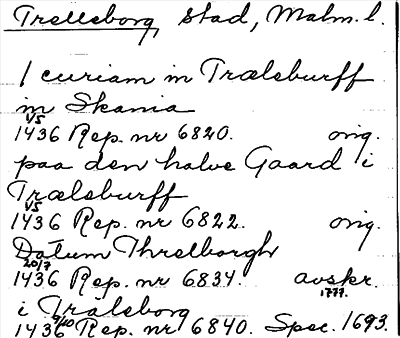 Trelleborg, stad, Malm. l.
1 curiam in Trælsburff
in Skania
1/5
1436 Rep. nr 6820. orig.
paa den halve Gaard i
Trælsburff
1/5
1436 Rep. nr 6822. orig.
Datum Threlborgh
20/7
1436 Rep. nr 6834. avskr.
1777.
i Trälsborg
9/10
1436 Rep. nr 6840. Spec. 1693.